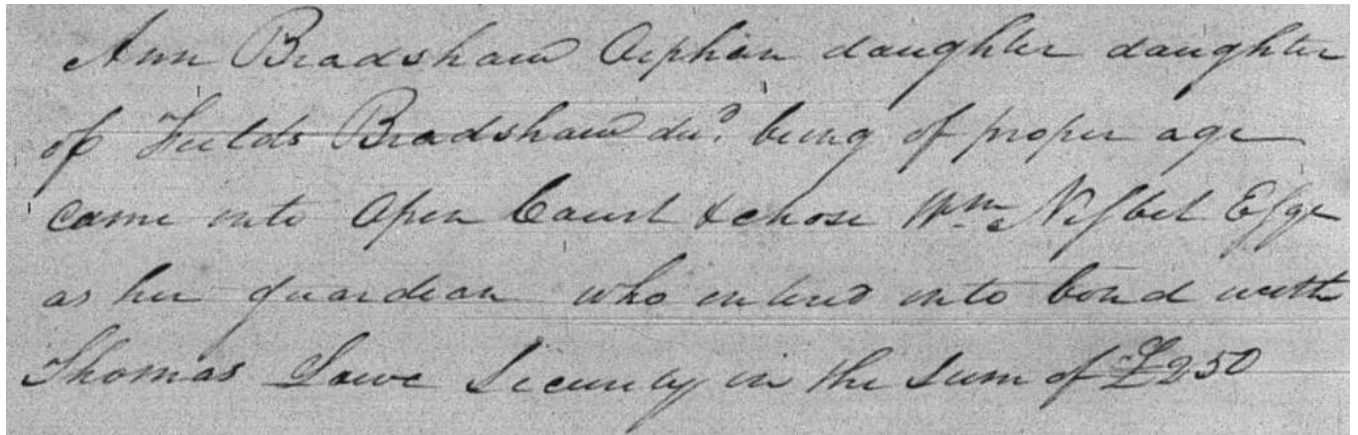 Ann Bradshaw Orphan daughter daughter
of Fields Bradshaw decd. being of proper age
came into Open Court & chose Wm. Nisbet Esqr
as her guardian who entered into bond with
Thomas Lowe Security in the sum of £250